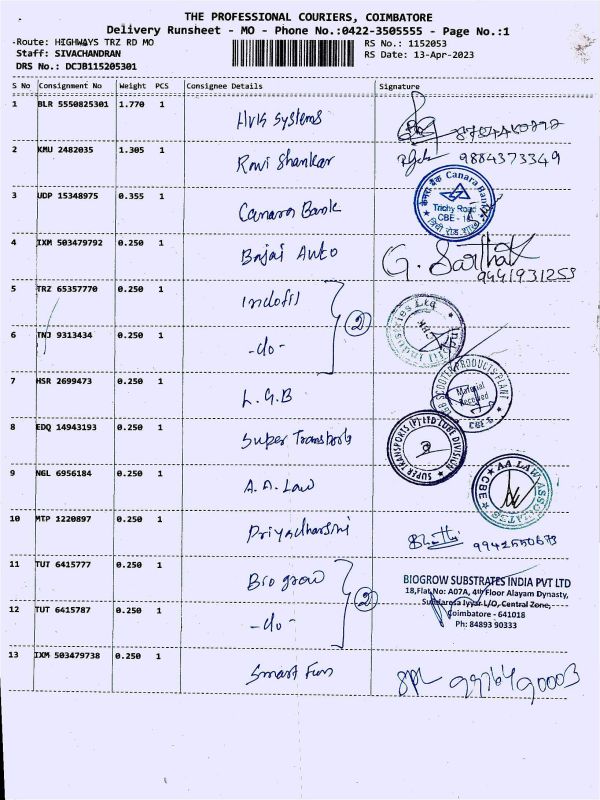 THE PROFESSIONAL COURIERS, COIMBATORE
Delivery Runsheet - MO - Phone No.:0422-3505555 - Page No.:1
Route: HIGHWAYS TRZ RD MO
RS No.: 1152053
Staff: SIVACHANDRAN
RS Date: 13-Apr-2023
DRS No.: DCJB115205301
S No Consignment No Weight PCS Consignee Details Signature
1 BLR 5550825301 1.770 1 Hvk Systems
2 KMU 2482035 1.305 1 Ravi Shankar 9884373349
3 UDP 15348975 0.355 1 Canara Bank
केनरा बैंक Canara Bank
Trichy Road
CBE - 18
4 IXM 503479792 0.250 1 Bajaj Auto G. Sarthak
9441931253
5 TRZ 65357770 0.250 1 Indofil
②
6 TNJ 9313434 0.250 1 -do-
Indofil Industries Ltd
7 HSR 2699473 0.250 1 L.G.B
LGB SCOOTER PRODUCTS PLANT
Material
Received
CBE-6
8 EDQ 14943193 0.250 1 Super Transports
SUPER TRANSPORTS (P) LTD LUBE DIVISION
9 NGL 6956184 0.250 1 A.A. Law
AA LAW ASSOCIATES
CBE
10 MTP 1220897 0.250 1 Priyadharsini 9942550673
11 TUT 6415777 0.250 1 Biogrow
②
BIOGROW SUBSTRATES INDIA PVT LTD
18,Flat No: A07A, 4th Floor Alayam Dynasty,
Sundaresa Iyyar L/O, Central Zone,
Coimbatore - 641018
Ph: 84893 90333
12 TUT 6415787 0.250 1 -do-
13 IXM 503479738 0.250 1 Smart Fun